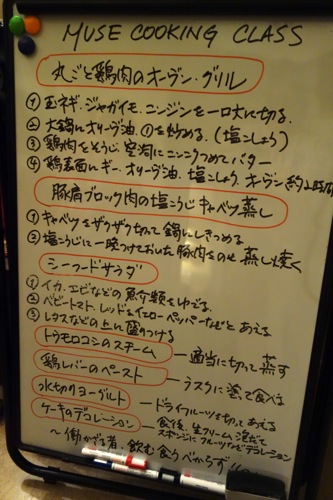 MUSE COOKING CLASS
丸ごと鶏肉のオーブン・グリル
① 玉ネギ、ジャガイモ、ニンジンを一口大に切る。
② 大鍋にオリーブ油、①を炒める。(塩こしょう)
③ 鶏肉をそうじ 空洞にニンニクつめてバター
④ 鶏表面にギー、オリーブ油、塩こしょう、オーブン約2時間
豚肩ブロック肉の塩こうじキャベツ蒸し
① キャベツをザクザク切って鍋にしきつめる
② 塩こうじに一晩つけておいた豚肉をのせ蒸し焼く
シーフードサラダ
① イカ、エビなどの魚介類をゆでる。
② ベビートマト、レッド&イエローペッパーなどとあえる
③ レタスなどの上に盛りつける
トウモロコシのスチーム ― 適当に切って蒸す
鶏レバーのペースト ― ラスクに塗って食べる
水切りヨーグルト ― ドライフルーツを切ってあえる
ケーキのデコレーション ― 食後、生クリーム混ぜて
スポンジにフルーツなどデコレーション
〜働かざる者、飲む食うべからず!!〜